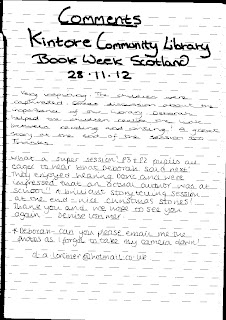 Comments
Kintore Community Library
Book Week Scotland
28·11·12
Very inspiring. The children were
captivated. Great discussion about the
importance of our library. Deborah
helped the children realise
reading and writing. A great
story at the end of the session too
What a super session! P3 & P2 pupils all
eager to hear what Deborah said next.
They enjoyed hearing and were
impressed that an actual author was at
school! A brilliant storytelling session
at the end - nice Christmas stories!
Thank you and we hope to see you
again. Denise Lorimer
* Deborah - can you please email me the
photos as I forgot to take my camera down!